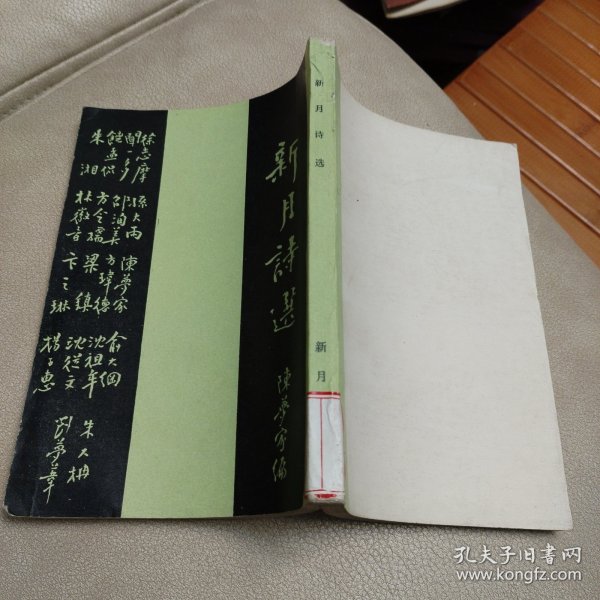 新月詩選
陳夢家編
徐志摩 孫大雨 陳夢家 俞大綱 朱大枏
聞一多 邵洵美 方瑋德 沈祖牟 劉夢葦
饒孟侃 方令孺 梁鎮 沈從文
朱湘 林徽音 卞之琳 楊子惠
新月诗选
新月
孔夫子旧书网
www.kongfz.com